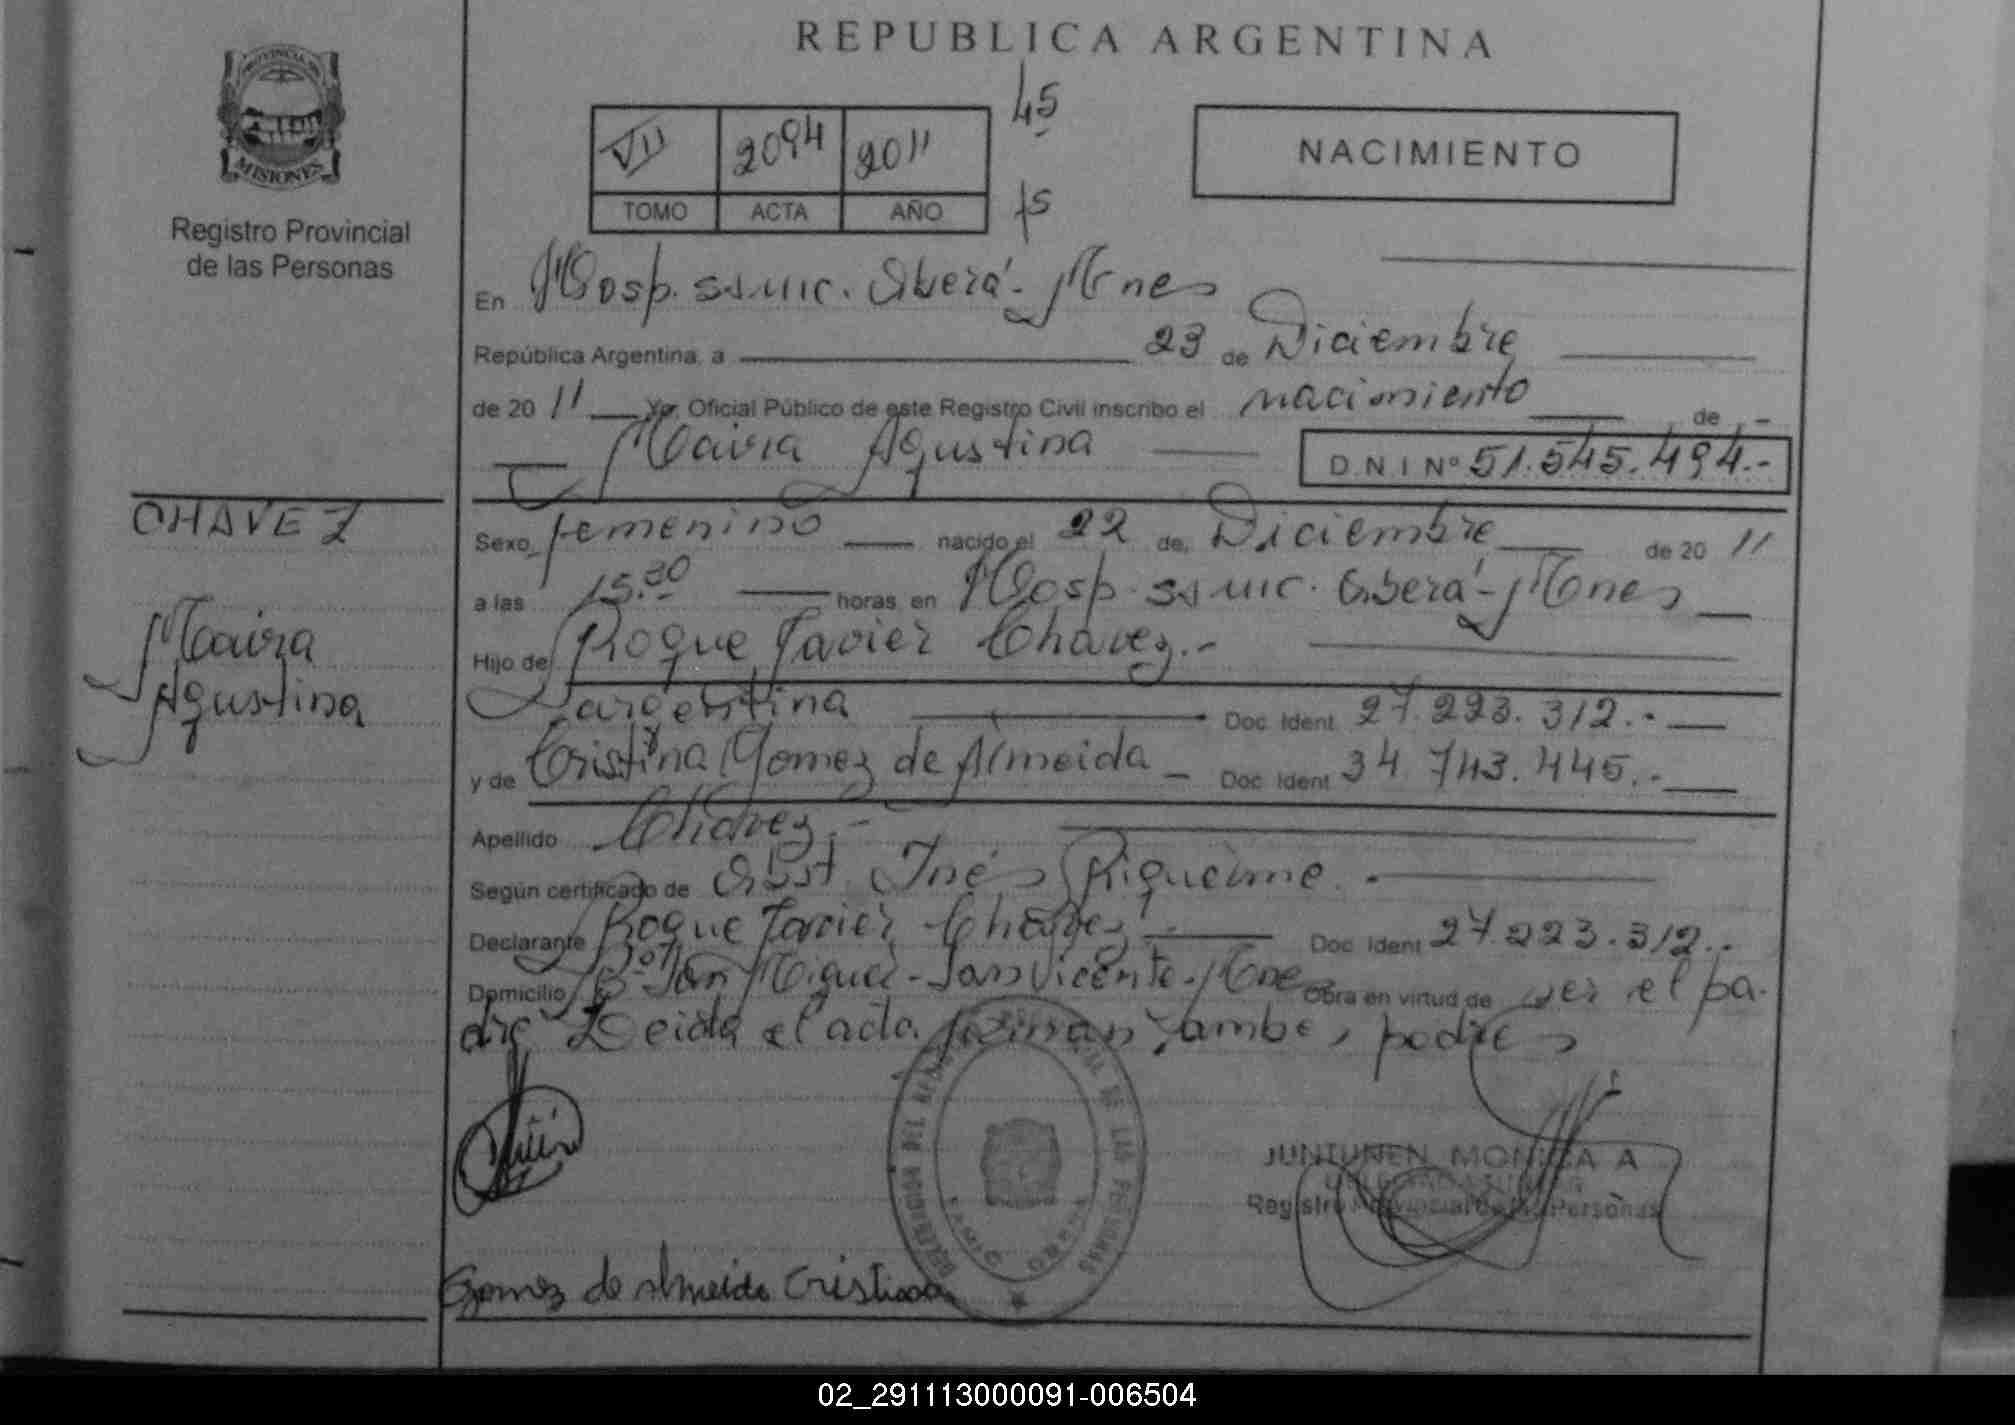 REPUBLICA ARGENTINA
PROVINCIA DE
MISIONES
Registro Provincial
de las Personas
VII 2094 2011
TOMO ACTA AÑO
45
NACIMIENTO
En Hosp. ssmic. Oberá - Mnes
República Argentina, a 23 de Diciembre
de 20 11 Yo, Oficial Público de este Registro Civil inscribo el nacimiento de -
Maira Agustina
D.N.I Nº 51.545.494.-
CHAVEZ
Maira
Agustina
Sexo femenino nacido el 22 de Diciembre de 20 11
a las 15.30 horas en Hosp. ssmic. Oberá - Mnes
Hijo de Roque Javier Chavez.-
argentina Doc. Ident. 27.223.312.-
y de Cristina Gomez de Almeida - Doc. Ident 34.743.445.-
Apellido Chavez.-
Según certificado de Obst. Inés Riquelme.
Declarante Roque Javier Chavez Doc. Ident 27.223.312.-
Domicilio Bº San Miguel - San Vicente - Mnes Obra en virtud de ser el pa-
dre Leida el acta firman ambos padres
DELEGACION DEL REGISTRO PROVINCIAL DE LAS PERSONAS
JUNTUNEN MONICA A
Registro Provincial de las Personas
Gomez de Almeida Cristina
02_291113000091-006504